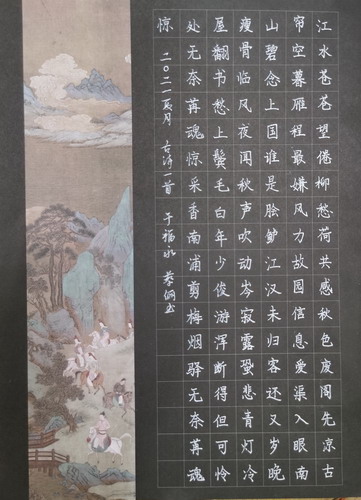 江水苍苍望倦柳愁荷共感秋色废阁先凉古
帘空暮雁程最嫌风力故园信息爱渠入眼南
山碧念上国谁是脍鲈江汉未归客还又岁晚
瘦骨临风夜闻秋声吹动岑寂露蛩悲青灯冷
屋翻书愁上鬓毛白年少俊游浑断得但可怜
处无奈苒魂惊采香南浦剪梅烟驿无奈苒魂
惊 二〇二一夏月 古诗一首 于福永